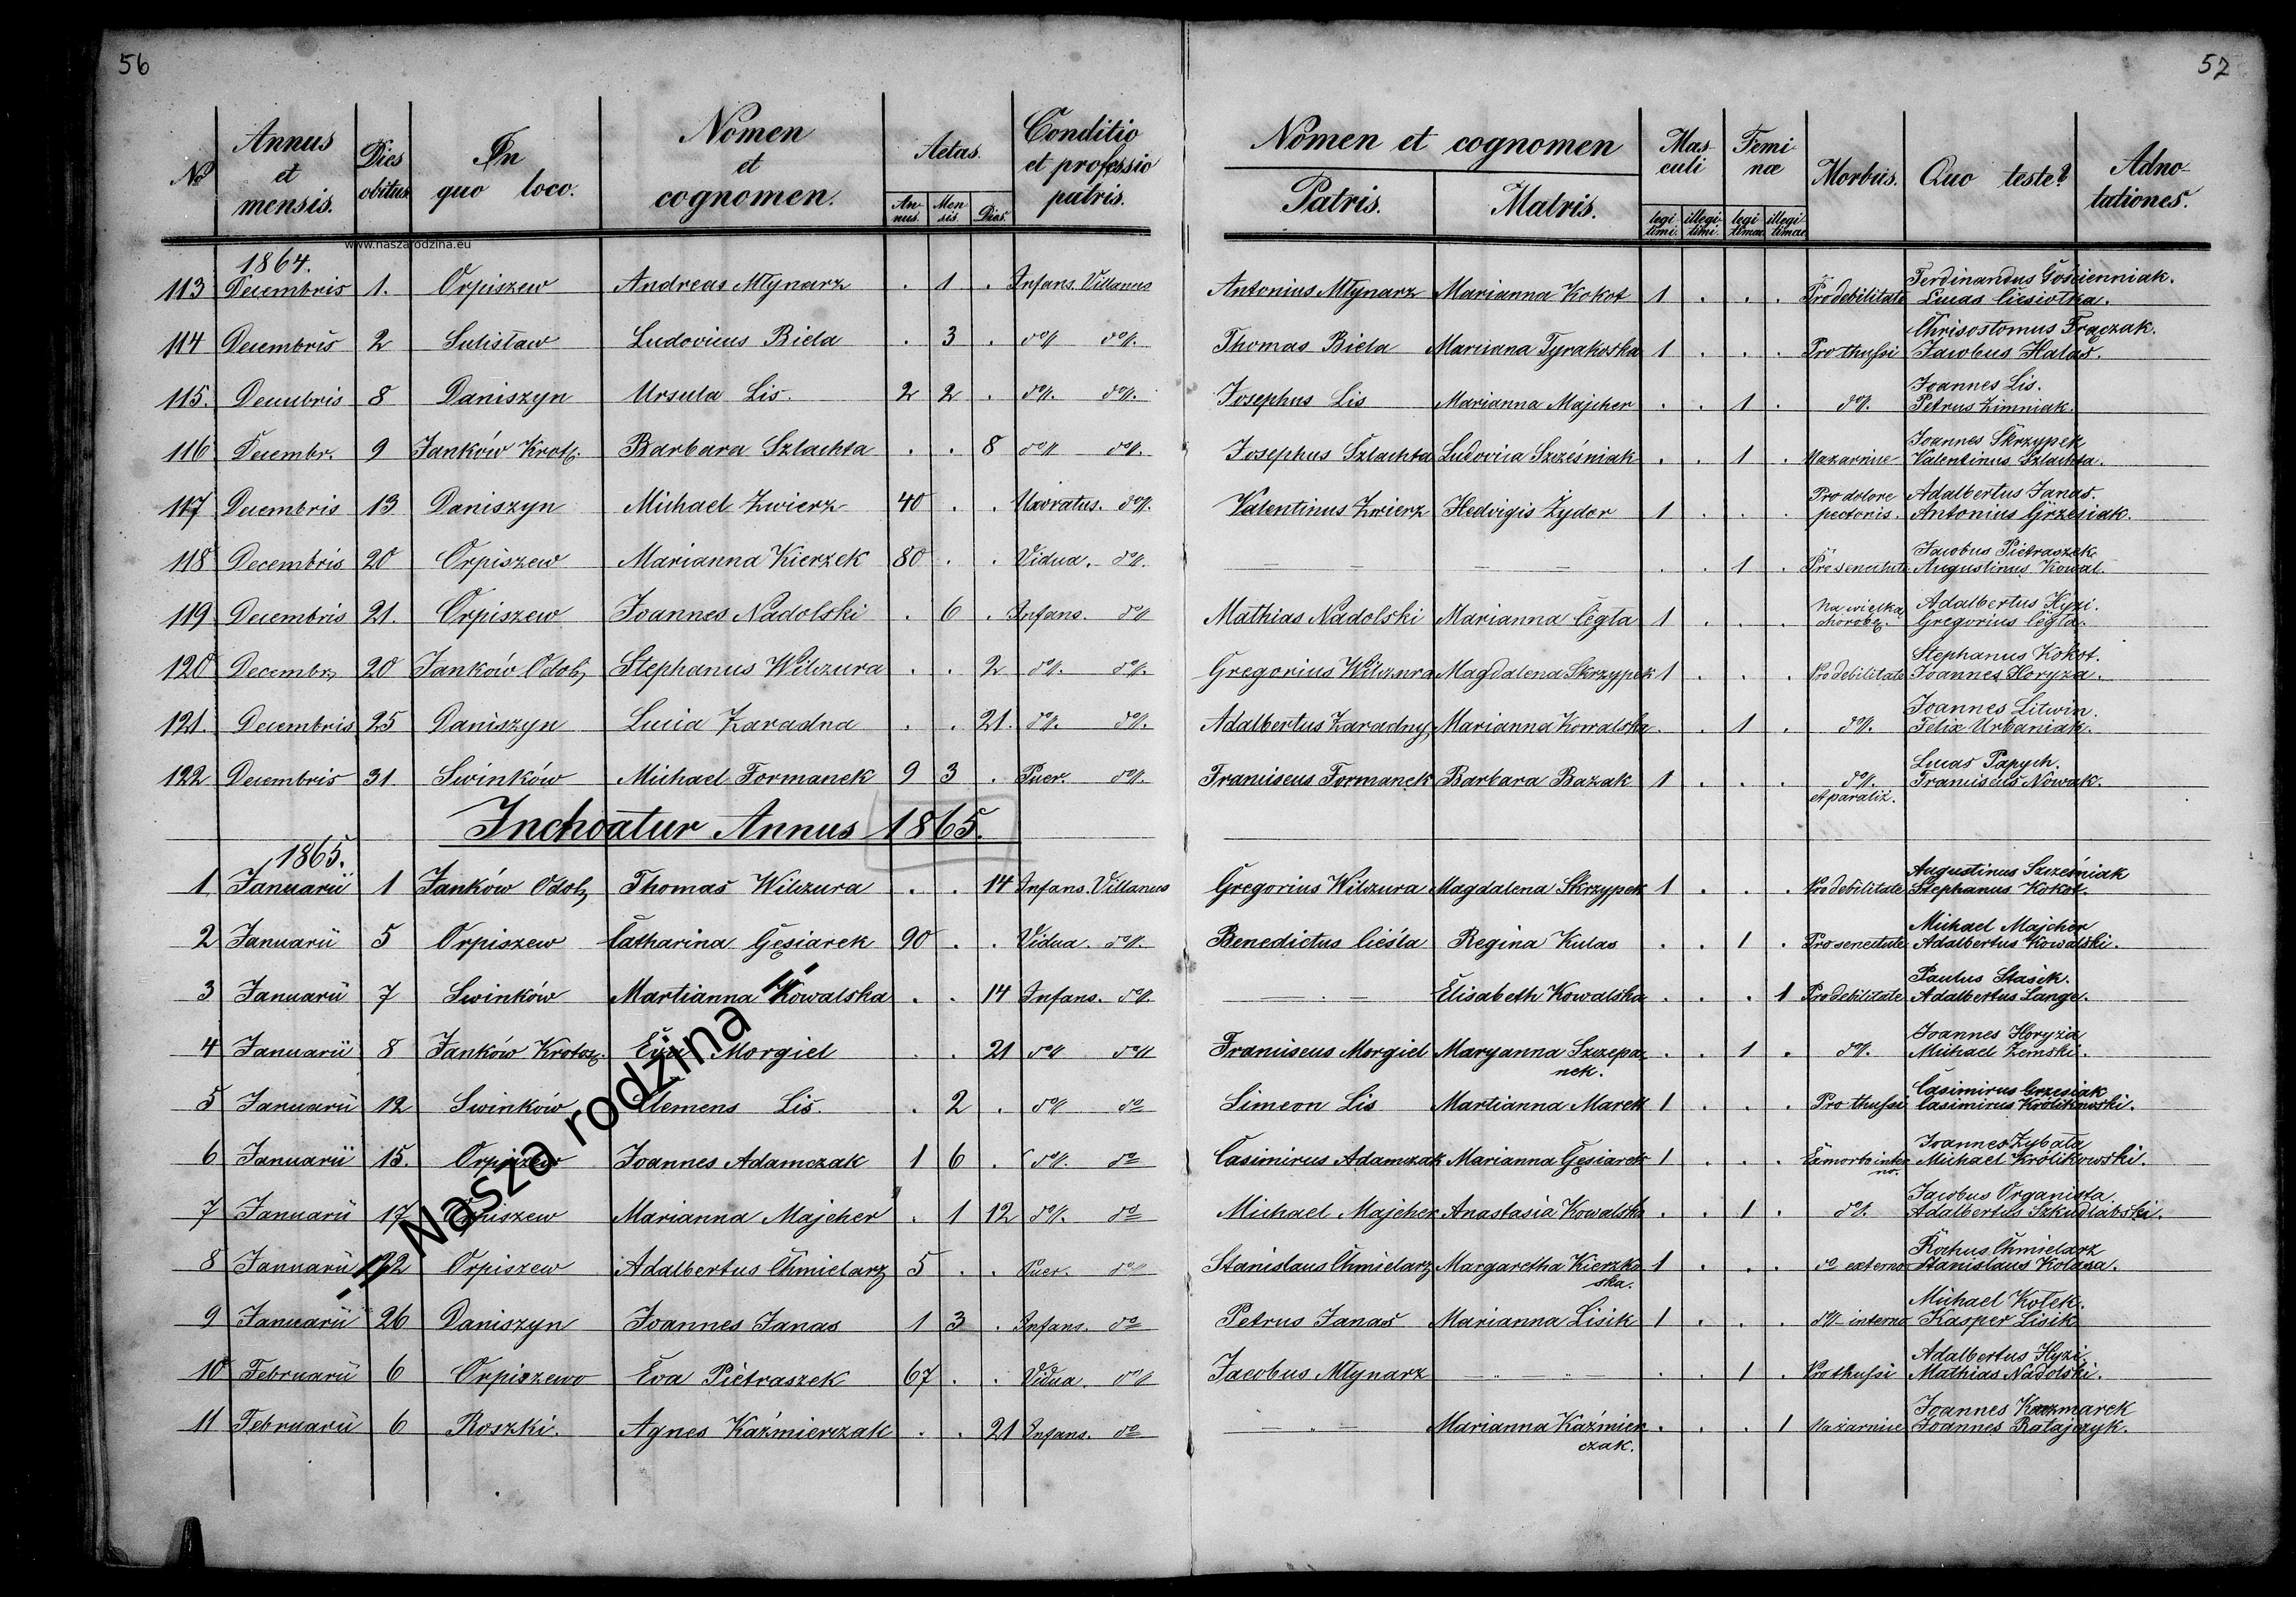 56
57
No Annus et mensis. Dies obitus In quo loco. Nomen et cognomen. Aetas. Annus. Mensis Dies. Conditio et professio patris. Nomen et cognomen Patris. Matris. Masculi legitimi. illegitimi. Feminæ legitimæ illegitimæ Morbus. Quo teste? Adnotationes.
www.naszarodzina.eu
1864.
113 Decembris 1. Orpiszew Andreas Młynarz . 1 . Infans. Villanus Antonius Młynarz Marianna Kokot 1 . . . Pro debilitate Ferdinandus Gościenniak. Lucas Ciesiołka.
114 Decembris 2 Sulisław Ludovicus Biela . 3 . do do Thomas Biela Marianna Tyrakoska 1 . . . Pro thussi Chrisostomus Frączak. Jacobus Halas.
115. Decembris 8 Daniszyn Ursula Lis. 2 2 . do do Josephus Lis Marianna Majcher . . 1 . do Joannes Lis. Petrus Zimniak.
116 Decembr. 9 Janków Krot. Barbara Szlachta . . 8 do do Josephus Szlachta Ludovica Szcześniak . . 1 . Nazarnice Joannes Skrzypek Valentinus Szlachta.
117 Decembris 13 Daniszyn Michael Zwierz 40 . . Uxoratus. do Valentinus Zwierz Hedvigis Żydor 1 . . . Pro dolore pectoris. Adalbertus Janas. Antonius Grzesiak.
118 Decembris 20 Orpiszew Marianna Kierzek 80 . . Vidua. do — — — — . . 1 . Pro senectute Jacobus Pietraszek Augustinus Kowal.
119 Decembris 21. Orpiszew Joannes Nadolski . 6 . Infans. do Mathias Nadolski Marianna Cegła 1 . . . Na wielką chorobę. Adalbertus Hyzi. Gregorius Cegła.
120 Decembr. 20 Janków Odol. Stephanus Wilczura . . 2 do do Gregorius Wilczura Magdalena Skrzypek 1 . . . Pro debilitate Stephanus Kokot. Joannes Horyza.
121. Decembris 25 Daniszyn Lucia Zaradna . . 21. do do Adalbertus Zaradny Marianna Kowalska . . 1 . do Joannes Litwin. Felix Urbaniak.
122 Decembris 31. Swinków Michael Formanek 9 3 . Puer. do Franciscus Formanek Barbara Bazak 1 . . . do et paraliż. Lucas Papych. Franciscus Nowak.
Inchoatur Annus 1865.
1865.
1 Januarii 1 Janków Odol. Thomas Wilczura . . 14 Infans. Villanus Gregorius Wilczura Magdalena Skrzypek 1 . . . Pro debilitate Augustinus Szcześniak Stephanus Kokot.
2 Januarii 5 Orpiszew Catharina Gęsiarek 90 . . Vidua. do Benedictus Cieśla Regina Kulas . . 1 . Pro senectute Michael Majcher Adalbertus Kowalski.
3 Januarii 7 Swinków Martianna Kowalska . . 14 Infans. do — . — Elisabeth Kowalska . . . 1 Pro debilitate Paulus Stasik. Adalbertus Lange.
4 Januarii 8 Janków Krotosz. Eva Morgiel . . 21 do do Franciscus Morgiel Maryanna Szczepanek. . . 1 . do Joannes Horyza Michael Zemski.
5 Januarii 12 Swinków Clemens Lis. . 2 . do do Simeon Lis Martianna Marek 1 . . . Pro thussi Casimirus Grzesiak Casimirus Królikowski.
6 Januarii 15. Orpiszew Joannes Adamczak 1 6 . do do Casimirus Adamczak Marianna Gęsiarek 1 . . . Ex morbo interno. Joannes Zybała Michael Królikowski.
7 Januarii 17 Orpiszew Marianna Majcher . 1 12 do do Michael Majcher Anastasia Kowalska . . 1 . do Jacobus Organista. Adalbertus Szkudlabski.
8 Januarii 22 Orpiszew Adalbertus Chmielarz 5 . . Puer. do Stanislaus Chmielarz Margaretha Kierzkoska. 1 . . . do externo Rochus Chmielarz Stanislaus Kolasa.
9 Januarii 26 Daniszyn Joannes Janas 1 3 . Infans. do Petrus Janas Marianna Lisik 1 . . . do interno Michael Kołek. Kasper Lisik
10 Februarii 6 Orpiszewo Eva Pietraszek 67 . . Vidua. do Jacobus Młynarz — — . . 1 . Pro thussi Adalbertus Hyzi. Mathias Nadolski.
11 Februarii 6 Roszki. Agnes Kaźmierczak . . 21 Infans. do — . — Marianna Kaźmierczak. . . . 1 Nazarnice Joannes Kaczmarek Joannes Ratajczyk.
- Nasza rodzina -